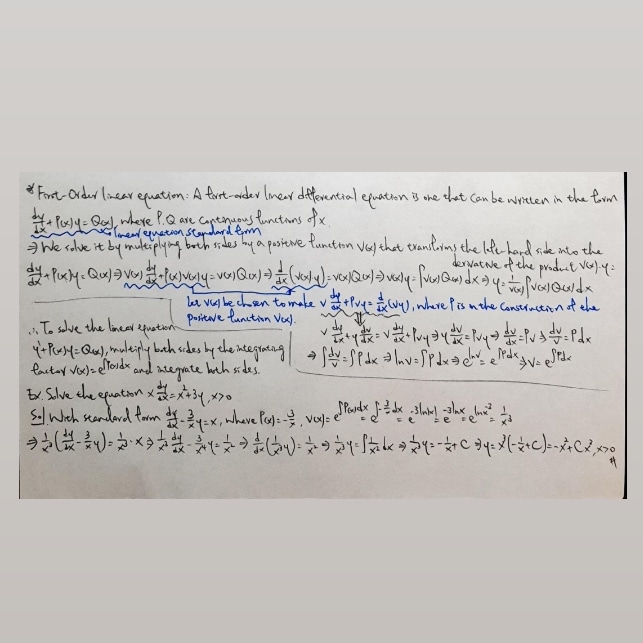 * First-Order linear equation: A first-order linear differential equation is one that can be written in the form
dy/dx + P(x)y = Q(x), where P.Q are continuous functions of x.
linear equation standard form
⇒ We solve it by multiplying both sides by a positive function V(x) that transforms the left-hand side into the
derivative of the product V(x)·y:
dy/dx + P(x)y = Q(x) ⇒ V(x) dy/dx + P(x)V(x)y = V(x)Q(x) ⇒ d/dx (V(x)·y) = V(x)Q(x) ⇒ V(x)y = ∫V(x)Q(x)dx ⇒ y = 1/V(x) ∫V(x)Q(x)dx
Let V(x) be chosen to make V dy/dx + PVy = d/dx (Vy), where P is in the construction of the
positive function V(x).
V dy/dx + y dV/dx = V dy/dx + PVy ⇒ y dV/dx = PVy ⇒ dV/dx = PV ⇒ dV/V = Pdx
⇒ ∫dV/V = ∫Pdx ⇒ lnV = ∫Pdx ⇒ e^lnV = e^∫Pdx ⇒ V = e^∫Pdx
∴ To solve the linear equation
y' + P(x)y = Q(x), multiply both sides by the integrating
factor V(x) = e^∫P(x)dx and integrate both sides.
Ex. Solve the equation x dy/dx = x² + 3y, x>0
Sol With standard form dy/dx - 3/x y = x, where P(x) = -3/x, V(x) = e^∫P(x)dx = e^∫-3/x dx = e^-3ln|x| = e^-3lnx = e^lnx⁻³ = 1/x³
⇒ 1/x³ (dy/dx - 3/x y) = 1/x³ · x ⇒ 1/x³ dy/dx - 3/x⁴ y = 1/x² ⇒ d/dx (1/x³ y) = 1/x² ⇒ 1/x³ y = ∫1/x² dx ⇒ 1/x³ y = -1/x + C ⇒ y = x³(-1/x + C) = -x² + Cx³, x>0 #